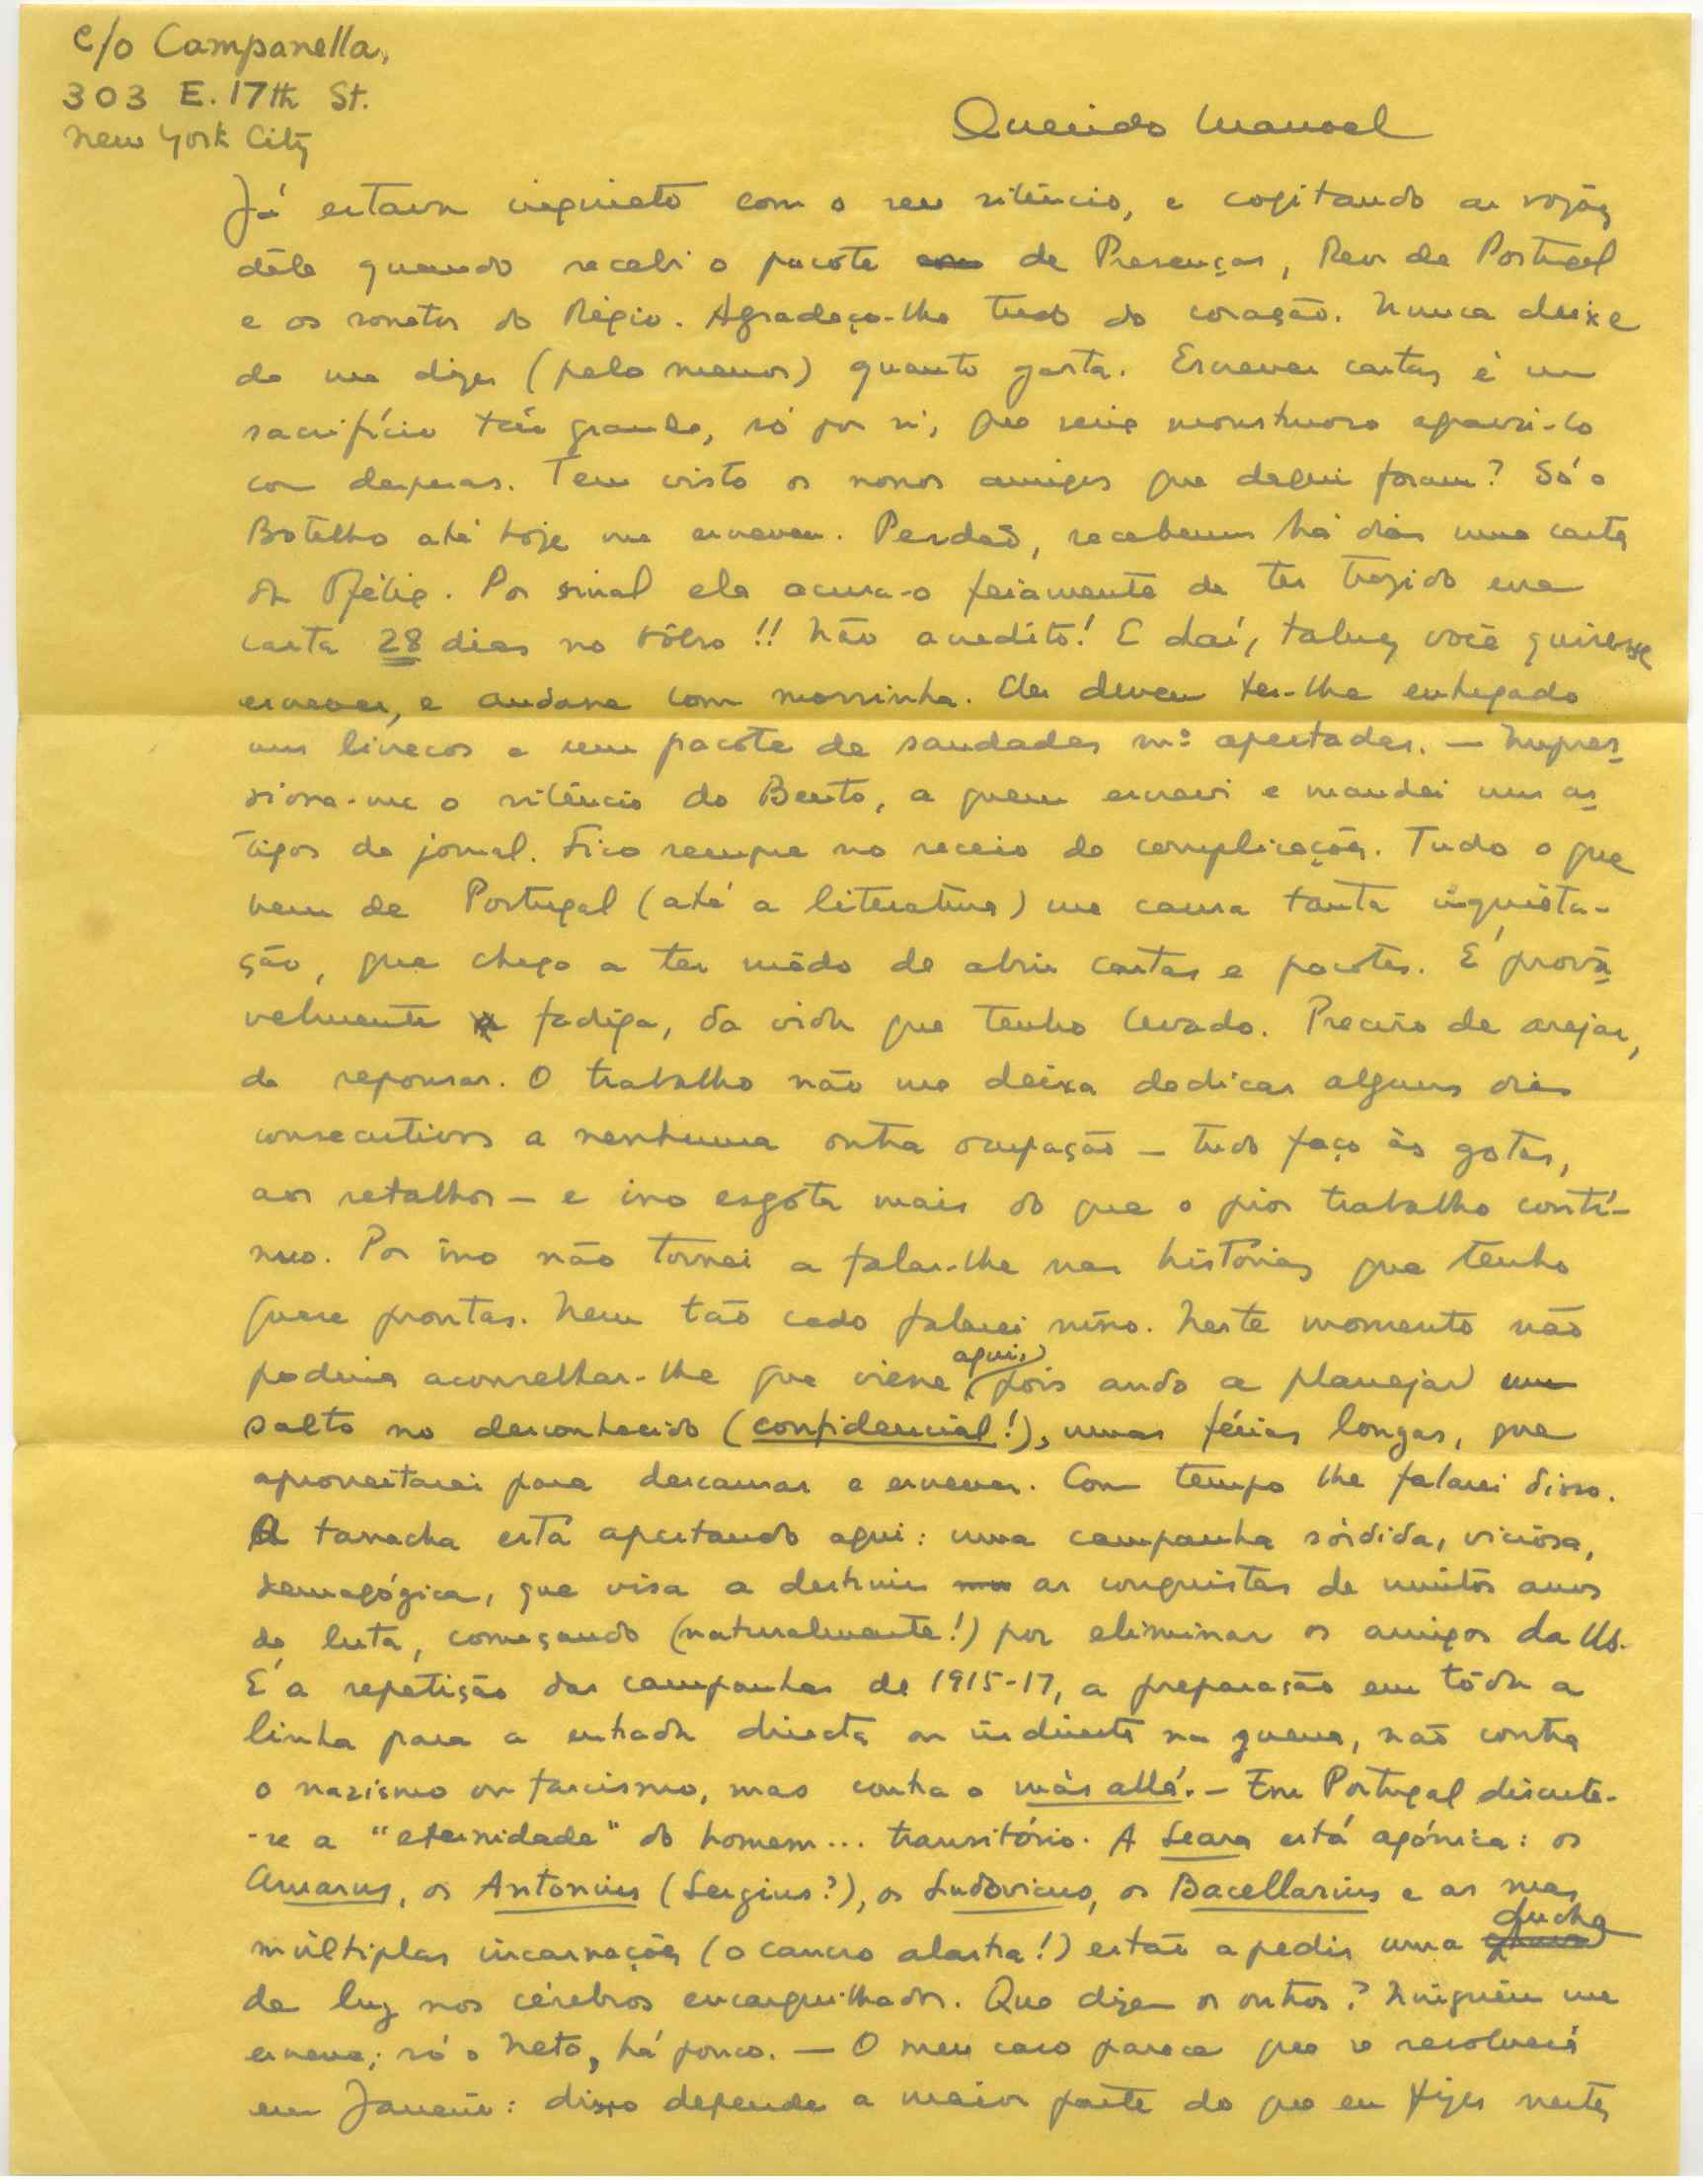 c/o Campanella,
303 E. 17th St.
New York City
Querido Manoel
Já estava inquieto com o seu silêncio, e cogitando as razões
dêle quando recebi o pacote de Presenças, Rev. de Portugal
e os sonetos do Régio. Agradeço-lhe tudo do coração. Nunca deixe
de me dizer (pelo menos) quanto gasta. Escrever cartas é um
sacrifício tão grande, só por si, que seria monstruoso agravá-lo
com despesas. Tem visto os nossos amigos que daqui foram? Só o
Botelho até hoje me escreveu. Perdão, recebemos há dias uma carta
da Ofélia. Por sinal ela acusa-o feiamente de ter trazido uma
carta 28 dias no bôlso!! Não acredito! E daí, talvez você quisesse
escrever, e andasse com morrinha. Eles devem ter-lhe entregado
uns livrecos e um pacote de saudades mº apertadas. — Impres-
siona-me o silêncio do Bento, a quem escrevi e mandei uns ar-
tigos de jornal. Fico sempre no receio de complicações. Tudo o que
vem de Portugal (até a literatura) me causa tanta inquieta-
ção, que chego a ter mêdo de abrir cartas e pacotes. É provà-
velmente fadiga, da vida que tenho levado. Preciso de arejar,
de repousar. O trabalho não me deixa dedicar alguns dias
consecutivos a nenhuma outra ocupação — tudo faço às gotas,
aos retalhos — e isso esgota mais do que o pior trabalho contí-
nuo. Por isso não tornei a falar-lhe nas histórias que tenho
quase prontas. Nem tão cedo falarei nisso. Neste momento não
poderia aconselhar-lhe que viesse aqui, (pois ando a planejar) um
salto no desconhecido (confidencial!), umas férias longas, que
aproveitarei para descansar e escrever. Com tempo lhe falarei disso.
A tarracha está apertando aqui: uma campanha sórdida, viciosa,
demagógica, que visa a destruir as conquistas de muitos anos
de luta, começando (naturalmente!) por eliminar os amigos da US.
É a repetição das campanhas de 1915-17, a preparação em tôda a
linha para a entrada directa ou indirecta na guerra, não contra
o nazismo ou fascismo, mas contra o más allá. — Em Portugal discute-
-se a "eternidade" do homem... transitório. A Seara está agónica: os
Amarus, os Antonius (Sergius?), os Ludovicus, os Bacellarius e as suas
múltiplas incarnações (o cancro alastra!) estão a pedir uma ducha
de luz nos cérebros encarquilhados. Que dizem os outros? Ninguém me
escreve; só o Neto, há pouco. — O meu caso parece que se resolverá
em Janeiro: disso depende a maior parte do que eu fizer nestes